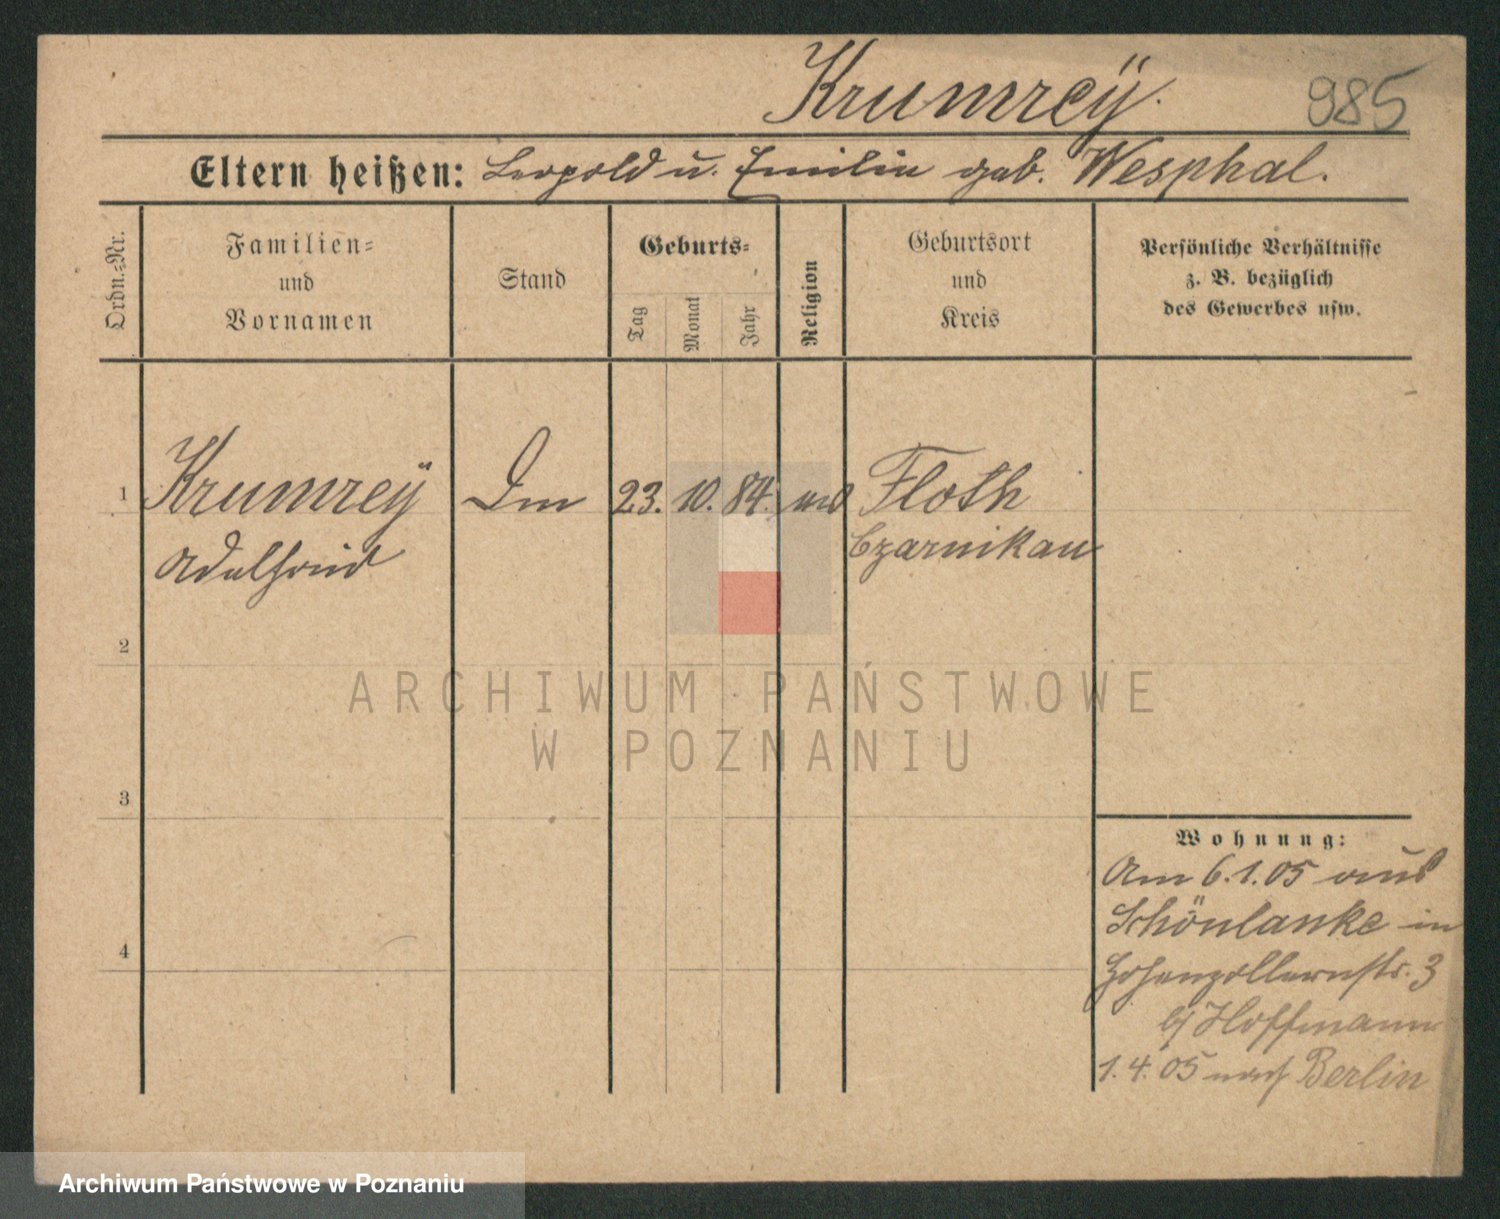 Krumreÿ.
985
Eltern heißen: Leopold u. Emilie geb. Wesphal.
Ordn.=Nr.
Familien=
und
Vornamen
Stand
Geburts=
Tag
Monat
Jahr
Religion
Geburtsort
und
Kreis
Persönliche Verhältnisse
z. B. bezüglich
des Gewerbes usw.
1 Krumreÿ 23. 10. 84. Floth
Czarnikau
2
ARCHIWUM PAŃSTWOWE
W POZNANIU
3
Wohnung:
Am 6.1.05 aus
Schönlanke in
4
Hohenzollernstr. 3
b/ Hoffmann
1.4.05 nach Berlin
Archiwum Państwowe w Poznaniu